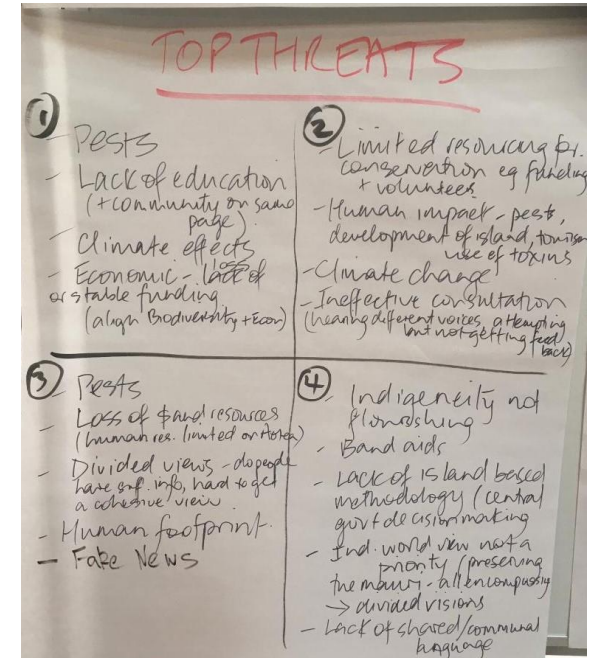 TOP THREATS
①
- Pests
- Lack of education
(+ community on same
page)
- Climate effects
- Economic - lack of
or stable funding
(align Biodiversity + Econ)
②
- Limited resourcing for
conservation eg funding
+ volunteers
- Human impact - pests,
development of island, tourism
use of toxins
- Climate change
- Ineffective consultation
(hearing different voices, attempting
but not getting feed
back)
③
- Pests
- Loss of $ and resources
(human res. limited on Aotea)
- Divided views - do people
have suf. info, hard to get
a cohesive view
- Human footprint.
- Fake News
④
- Indigeneity not
flourishing
- Band aids
- Lack of island based
methodology / central
govt decision making
- Ind. world view not a
priority / preserving
the mauri - all encompassing
→ divided visions
- Lack of shared/communal
language